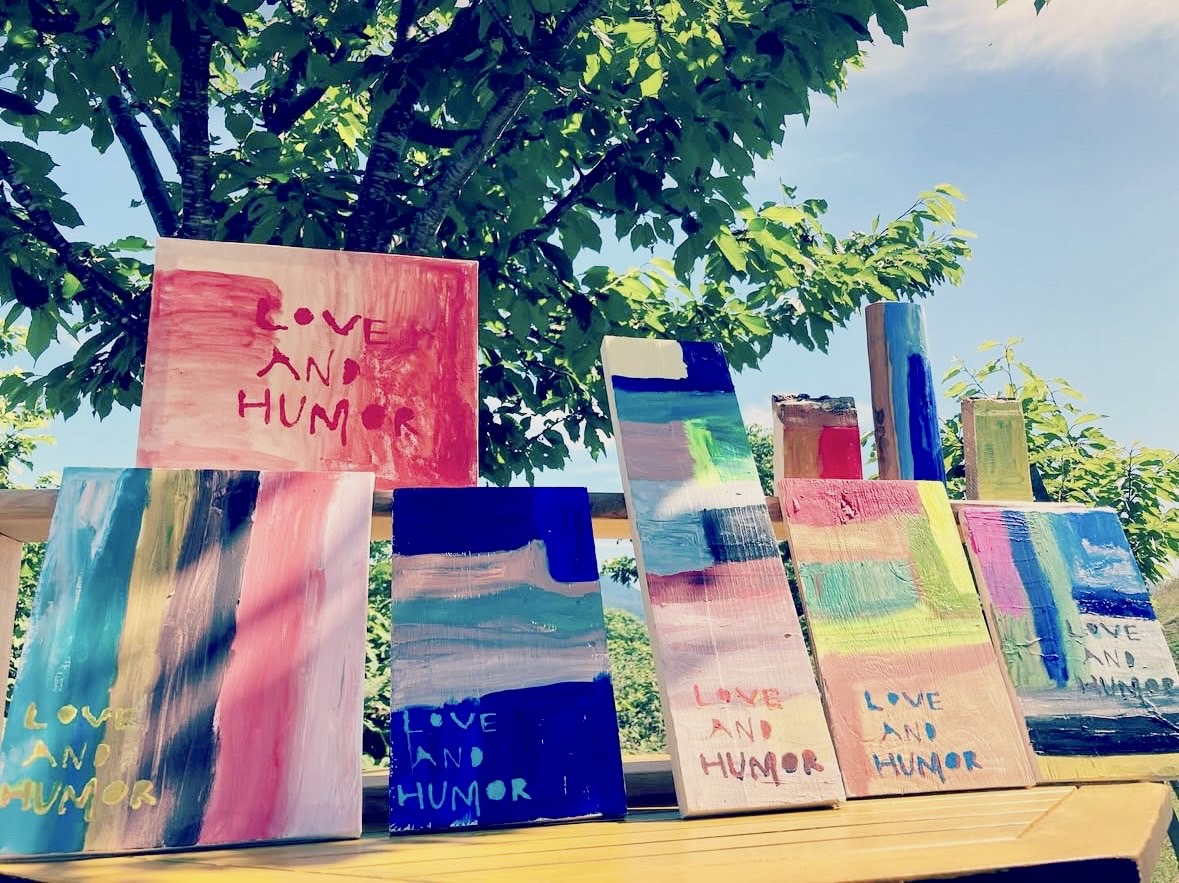 LOVE
AND
HUMOR
LOVE
AND
HUMOR
LOVE
AND
HUMOR
LOVE
AND
HUMOR
LOVE
AND
HUMOR
LOVE
AND
HUMOR